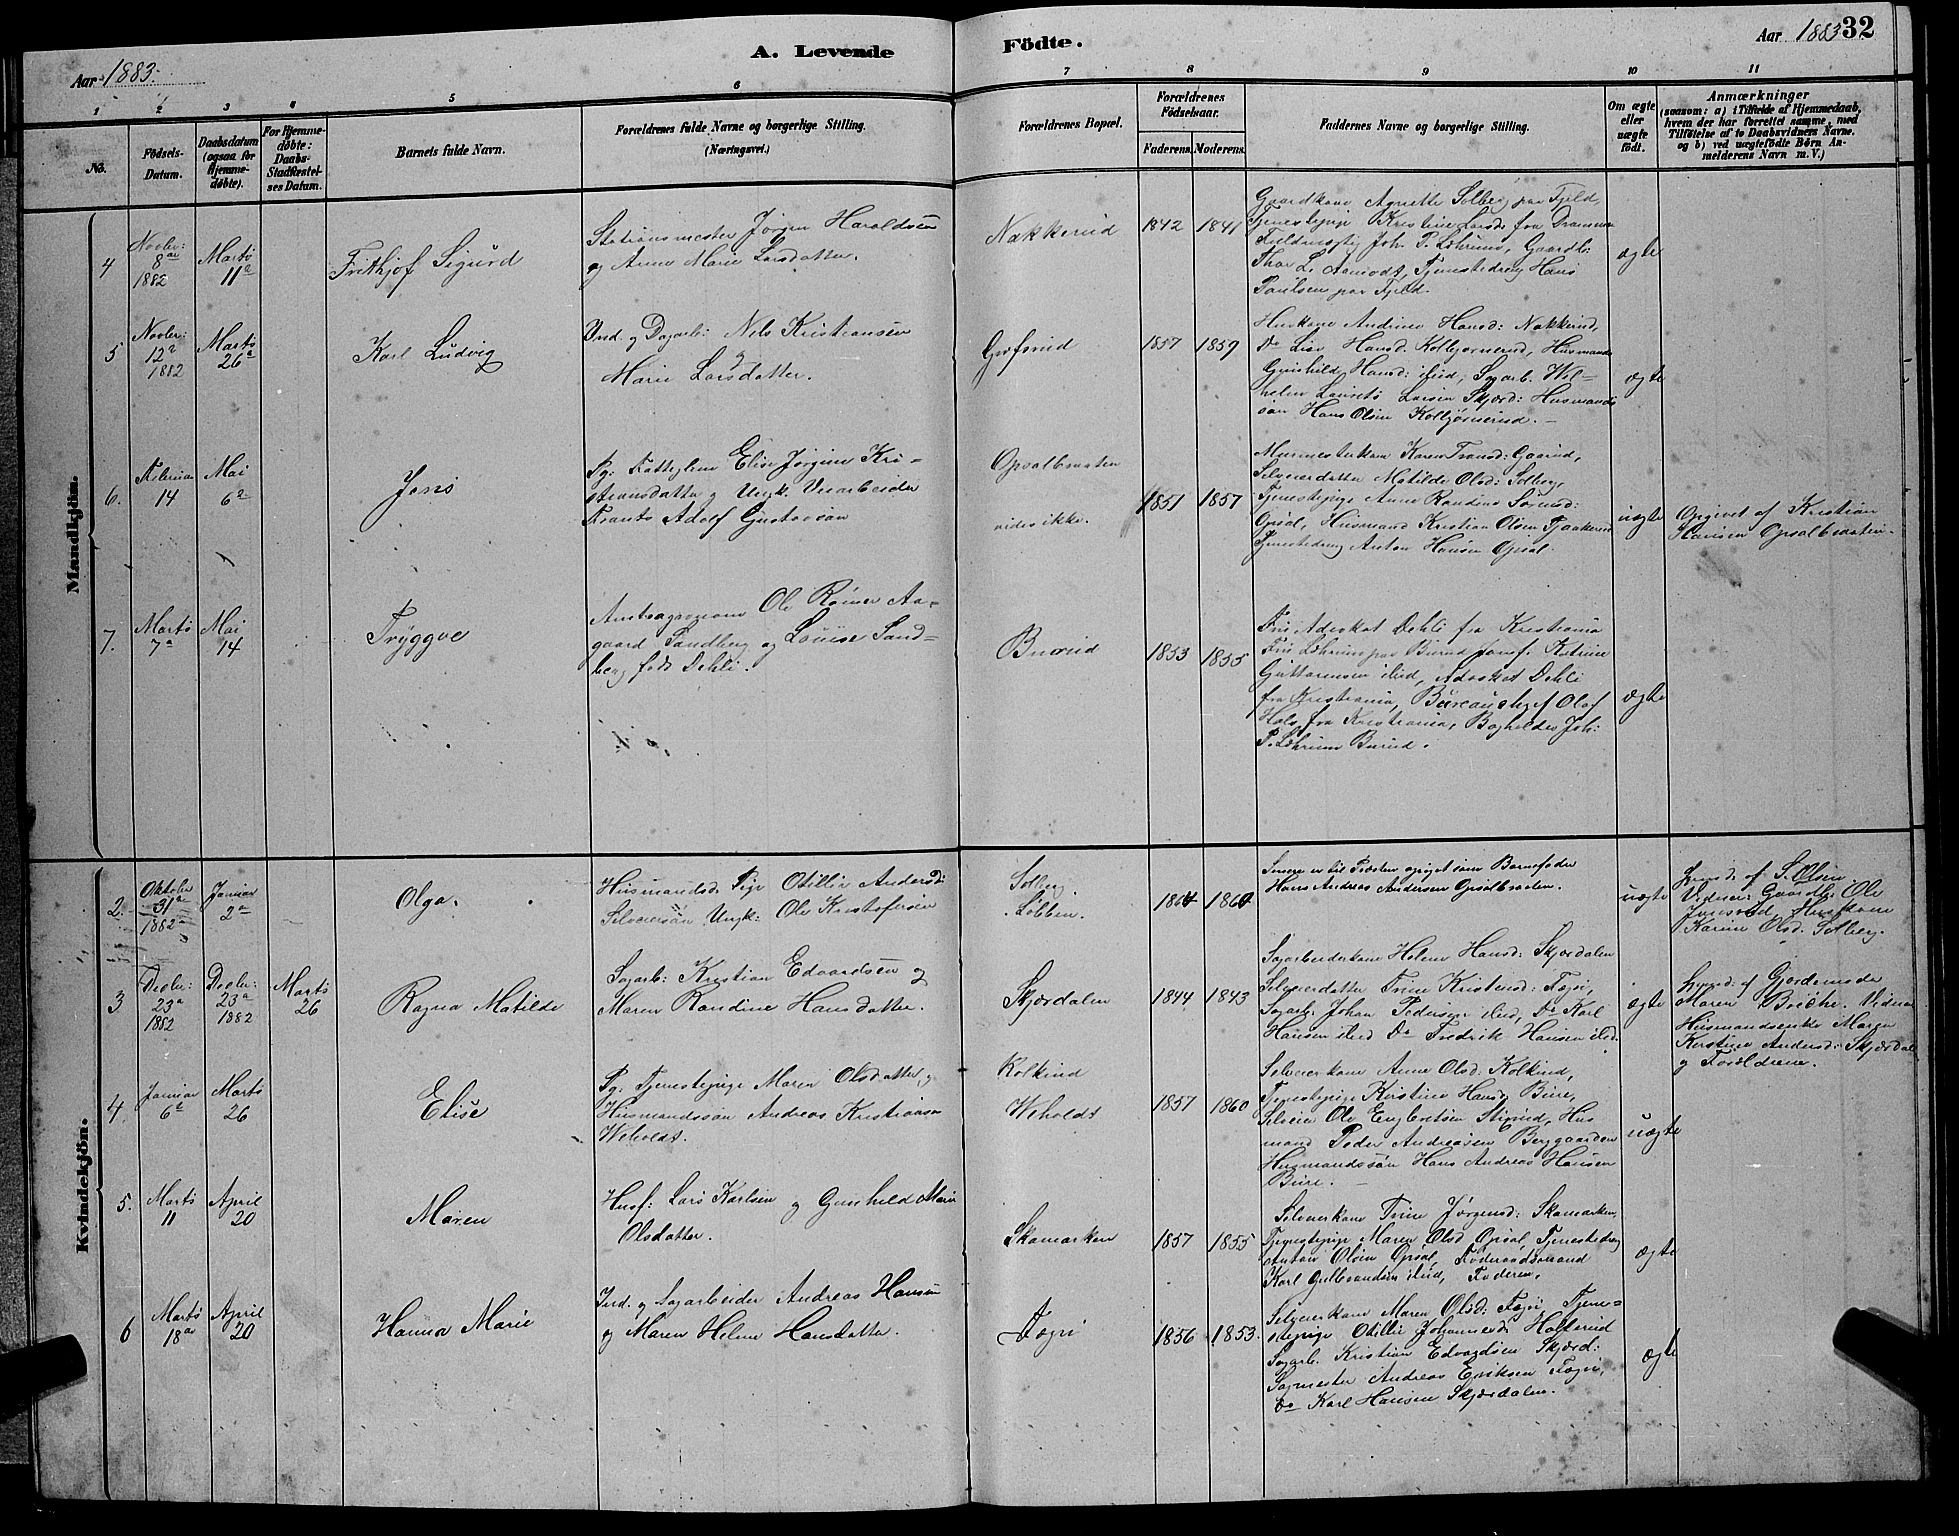 A. Levende Födte.
Aar 1883.
Aar 1883 32
1 2 3 4 5 6 7 8 9 10 11
No.
Födsels-Datum.
Daabsdatum (ogsaa for Hjemmedøbte).
For Hjemmedøbte: Daabs-Stadfæstelses Datum.
Barnets fulde Navn.
Forældrenes fulde Navne og borgerlige Stilling.
(Næringsvei.)
Forældrenes Bopæl.
Forældrenes Födselsaar.
Faderens. Moderens.
Faddernes Navne og borgerlige Stilling.
Om ægte eller uægte födt.
Anmærkninger
(saasom: a) i Tilfælde af Hjemmedaab, hvem der har forrettet samme, med Tilföielse af to Daabsvidners Navne. og b) ved uægtefödte Börn Anmelderens Navn m. V.)
Mandkjön.
4
Novbr: 8de 1882
Marts 11te
Frithjof Sigurd
Stationsmester Jörgen Haraldsen
og Anne Marie Larsdatter.
Nakkerud
1842 1841
Gaardkone Agnette Solberg paa Fjeld,
Tjenestepige Kristine Larsd: fra Drammen
Joh. P. Löhrum, Gaardb:
Thor L. Aamodt, Tjenestedreng Hans
Paulsen paa Fjeld.
ægte
5
Novbr: 12te 1882
Marts 26de
Karl Ludvig
Ind. og Dagarb: Nels Kristiansen
og
Marie Larsdatter.
Gresrud
1857 1859
Huskone Andrine Hansd: Nakkerud,
Do Lise Hansd. Kolbjørnerud, Husmands
Gunhild Hansd: ibid, Sagarb. Wil=
helm Laurets Larsen Skjærd: Husmands
søn Hans Olsen Kolbjørnerud. –
ægte
6.
Februar 14
Mai 6te
Jens
Pg: Fattiglem Elise Jørgine Kri=
stiansdatter og Ungk. Veiarbeider
Frants Adolf Gustavsøn
Opsalbraaten
vides ikke.
1851 1857
Murmesterkone Karen Fransd: Gaarud,
Selveierdatter Matilde Olsd: Solberg,
Tjenestepige Anne Randine Sörensd:
Opsal, Husmand Kristian Olsen Tjaakerud
Tjenestedreng Anton Hansen Opsal.
uægte
Opgivet af Kristian
Hansen Opsalbraaten.
7.
Marts 7de
Mai 14
Tryggve
Ole Rømer Aa=
gaard Sandberg og Louise Sand=
berg født Dehli.
Burud
1853 1855
Fru Advokat Dehli fra Kristiania
Fru Löhrum paa Burud Jomf. Katrine
Guttormsen ibid, Advokat Dehli
fra Kristiania, Bureauchef Olaf
Hals fra Kristiania, Bogholder Joh:
P. Löhrum Burud.
ægte
Kvindekjön.
2.
Oktober 31te 1882
Januar 2de
Olga.
Husmandsd. Pige Otillie Andersd:
Selveiersøn Ungk: Ole Kristofersen
Solberg.
Løbben.
1864 1860
Senere er til Præsten opgivet som Barnefader
Hans Andreas Andersen Opsalbraaten.
uægte
Hjemd: af S. Olsen
Vidner: Gaardb: Ole
Juverud, Huskone
Karine Olsd. Solberg.
3
Decbr: 23de 1882
Decbr: 23de 1882
Marts 26
Ragna Matilde
Sagarb: Kristian Edvardsen og
Maren Randine Hansdatter.
Skjærdalen
1844 1843
Sagarbeiderkone Helene Hansd: Skjærdalen
Selveierdatter Trine Kristensd: Fægri,
Sagarb: Johan Pedersen ibid, Do Karl
Hansen ibid Do Fredrik Hansen ibid.
ægte
Hjemd: af Gjordemoder
Maren Beiche. Vidner
Husmandsenke Maren
Kirstine Andersd: Skjærdal
og Forældrene.
4.
Januar 6te
Marts 26
Elise
Pg: Tjenestepige Maren Olsdatter, og
Husmandssøn Andreas Kristiansen
Weholdt.
Kolkind
Weholdt
1857 1860
Selveierkone Anne Olsd: Kolkind,
Tjenestepige Kirstine Hansd: Bure,
Selveier Ole Engbretsen Stirud, Hus
mand Peder Andreasen Berggaarden
Husmandssøn Hans Andreas Hansen
Bure. –
uægte
5.
Marts 11
April 20
Maren
Husf: Lars Karlsen og Gunhild Marie
Olsdatter.
Skamarken
1857 1855
Selveierkone Trine Jørgensd: Skamarken,
Tjenestepige Maren Olsd Opsal, Tjenestedreng
Anton Olsen Opsal, Föderaadsmand
Karl Gulbrandsen ibid, Faderen.
ægte
6
Marts 18de
April 20
Hanna Marie
Ind. og Sagarbeider Andreas Hansen
og Maren Helene Hansdatter.
Fægri
1856 1853.
Selveierkone Maren Olsd: Fægri, Tjene=
stepige Otillie Johannesd: Hafserud
Sagarb. Kristian Edvardsen Skjærd:
Sagmester Andreas Eriksen Fægri,
Do Karl Hansen Skjærdalen.
ægte